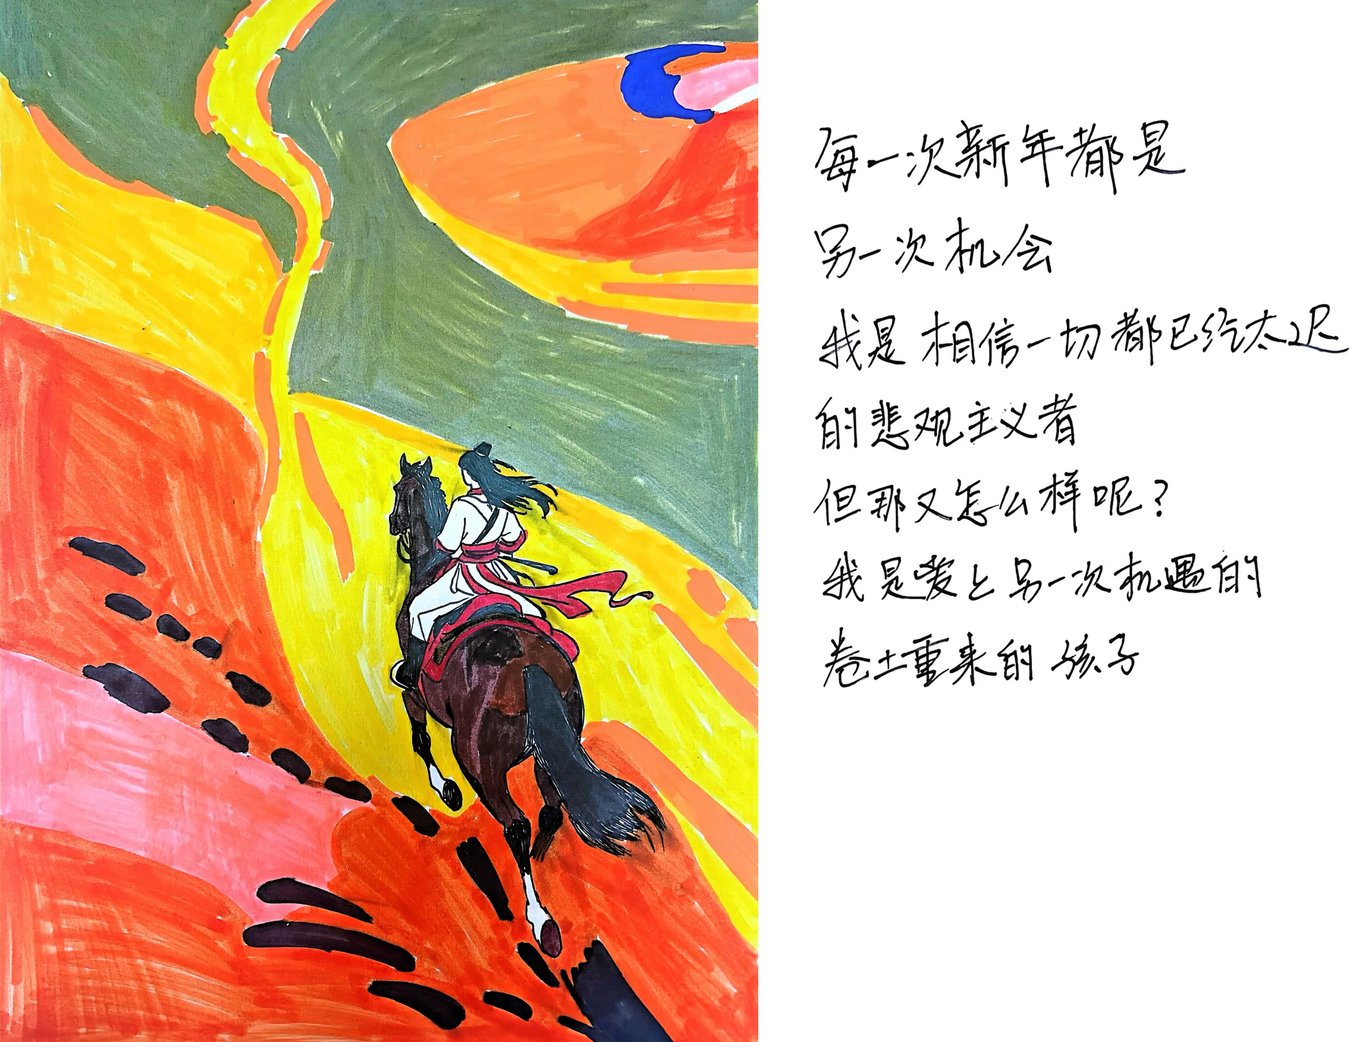 每一次新年都是
另一次机会
我是相信一切都已经太迟
的悲观主义者
但那又怎么样呢？
我是爱上另一次机遇的
卷土重来的孩子